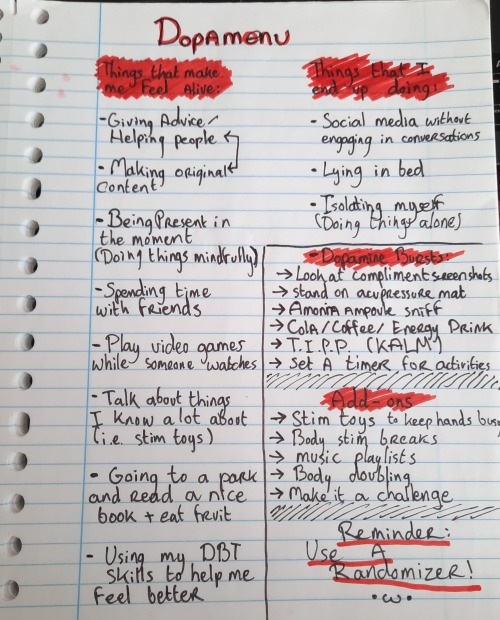 Dopamenu
Things that make
me feel Alive:
- Giving Advice/
Helping people
- Making original
content
- Being Present in
the moment
(Doing things mindfully)
- Spending time
with friends
- Play video games
while someone watches
- Talk about things
I know a lot about
(i.e. stim toys)
- Going to a park
and read a nice
book + eat fruit
- Using my DBT
Skills to help me
feel better
Things that I
end up doing:
- Social media without
engaging in conversations
- Lying in bed
- Isolating myself
(Doing things alone)
- Dopamine Bursts:
→ Look at compliment screenshots
→ stand on acupressure mat
→ Amonia Ampoule sniff
→ Cola/Coffee/Energy Drink
→ T.I.P.P. (KALM)
→ Set A timer for activities
Add-ons
→ Stim toys to keep hands busy
→ Body stim breaks
→ music playlists
→ Body doubling
→ Make it a challenge
Reminder:
Use A
Randomizer!
•ω•